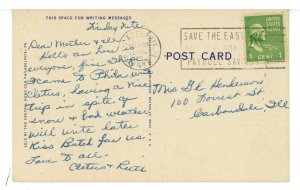 THIS SPACE FOR WRITING MESSAGES
Friday Nite
Dear Mother & all,
Hello an how is
everyone fine I hope
I came to Phila with
Cletus, having a nice
trip in spite of
snow & bad weather
will write later
Kiss Butch for us.
Love to all.
Cletus & Ruth
POST CARD
SAVE THE EASY
PAYROLL SAVINGS
1 CENT
Mrs G L Henderson
100 Forrest St
Carbondale, Ill